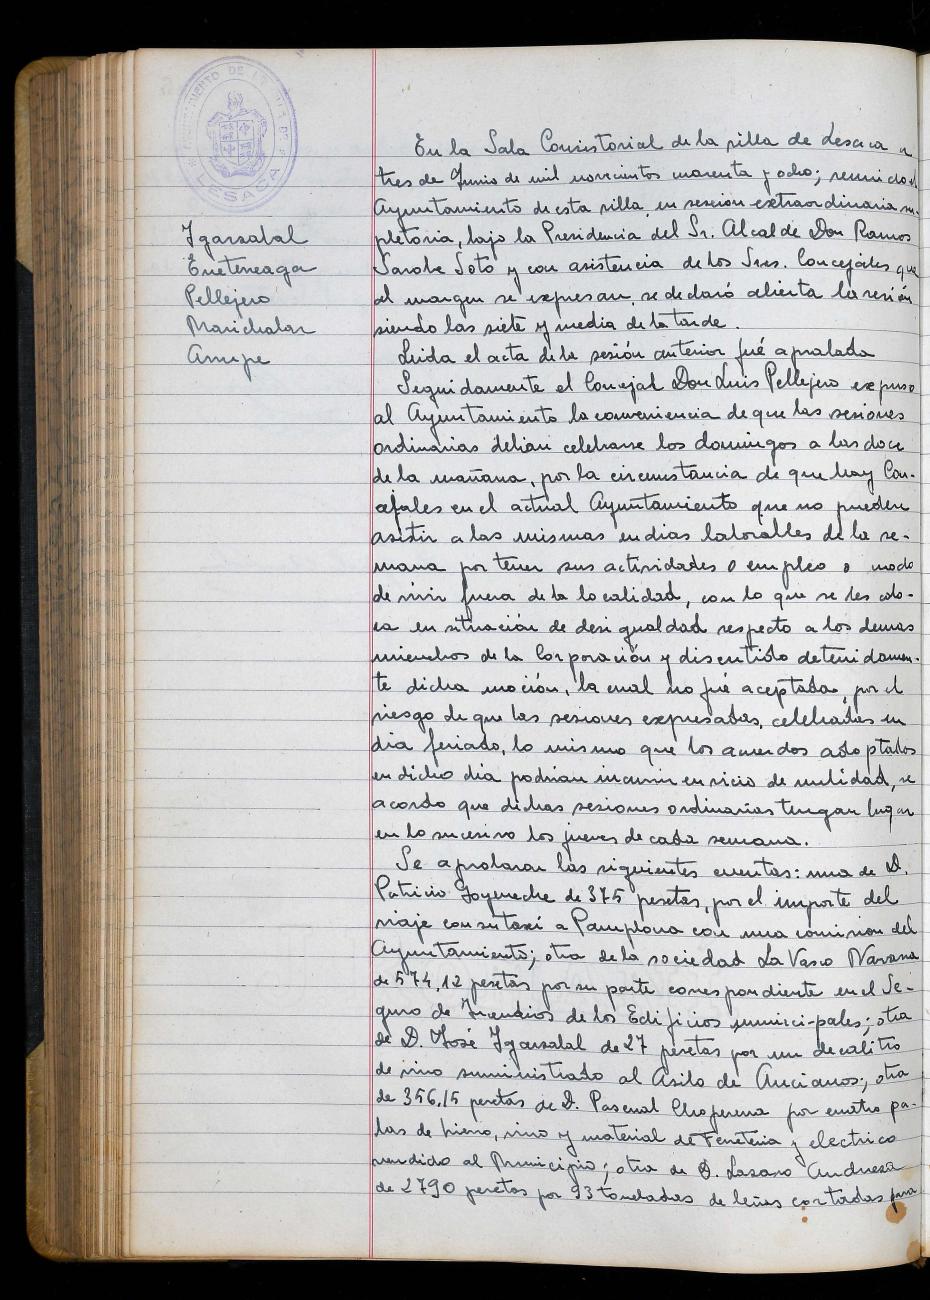 AYUNTAMIENTO DE LA VILLA DE
LESACA
Igarzabal
Eneteneaga
Pellejero
Marichalar
Arrupe
En la Sala Consistorial de la villa de Lesaca a
tres de Junio de mil novecientos cuarenta y ocho; reunido el
Ayuntamiento de esta villa en sesión extraordinaria su-
pletoria, bajo la Presidencia del Sr. Alcalde Don Ramos
Sarobe Soto y con asistencia de los Sres. Concejales que
al margen se expresan, se declaró abierta la sesión
siendo las siete y media de la tarde.
Leida el acta de la sesión anterior fué aprobada
Seguidamente el Concejal Don Luis Pellejero expuso
al Ayuntamiento la conveniencia de que las sesiones
ordinarias debian celebrarse los domingos a las doce
de la mañana, por la circunstancia de que hay Con-
cejales en el actual Ayuntamiento que no pueden
asistir a las mismas en dias laborables de la se-
mana por tener sus actividades o empleo o modo
de vivir fuera de la localidad, con lo que se les colo-
ca en situación de desigualdad respecto a los demas
miembros de la Corporación y discutido detenidamen-
te dicha moción, la cual no fué aceptada, por el
riesgo de que las sesiones expresadas, celebradas en
dia feriado, lo mismo que los acuerdos adoptados
en dicho dia podrian incurrir en vicio de nulidad, se
acordo que dichas sesiones ordinarias tengan lugar
en lo sucesivo los jueves de cada semana.
Se aprobaron las siguientes cuentas: una de D.
Patricio Goyeneche de 375 pesetas, por el importe del
viaje con su taxi a Pamplona con una comision del
Ayuntamiento; otra de la sociedad La Vasco Navarra
de 574,12 pesetas por su parte correspondiente en el Se-
guro de Incendios de los Edificios municipales; otra
de D. José Igarzabal de 27 pesetas por un decalitro
de vino suministrado al Asilo de Ancianos; otra
de 356,15 pesetas de D. Pascual Choperena por cuatro pa-
las de hierro, vino y material de Ferreteria y electrico
vendido al Municipio; otra de D. Lazaro Andueza
de 2790 pesetas por 93 toneladas de leñas cortadas para